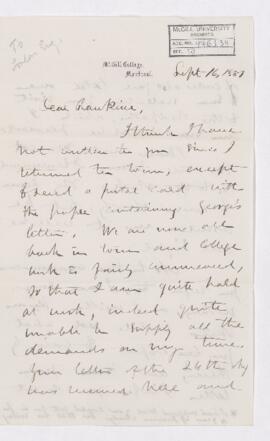 To
McGILL UNIVERSITY
ARCHIVES
ACC. NO.
REF.
McGill College,
Montreal.
Sept 16, 188
Dear
I think I have
not written to you since I
returned to town, except
to send a postal card with
the paper containing George's
letter. We are now all
back in town and College
work is fairly commenced,
so that I am quite hard
at work, indeed quite
unable to supply all the
demands on my time.
Your letter of the 26th
was received here and